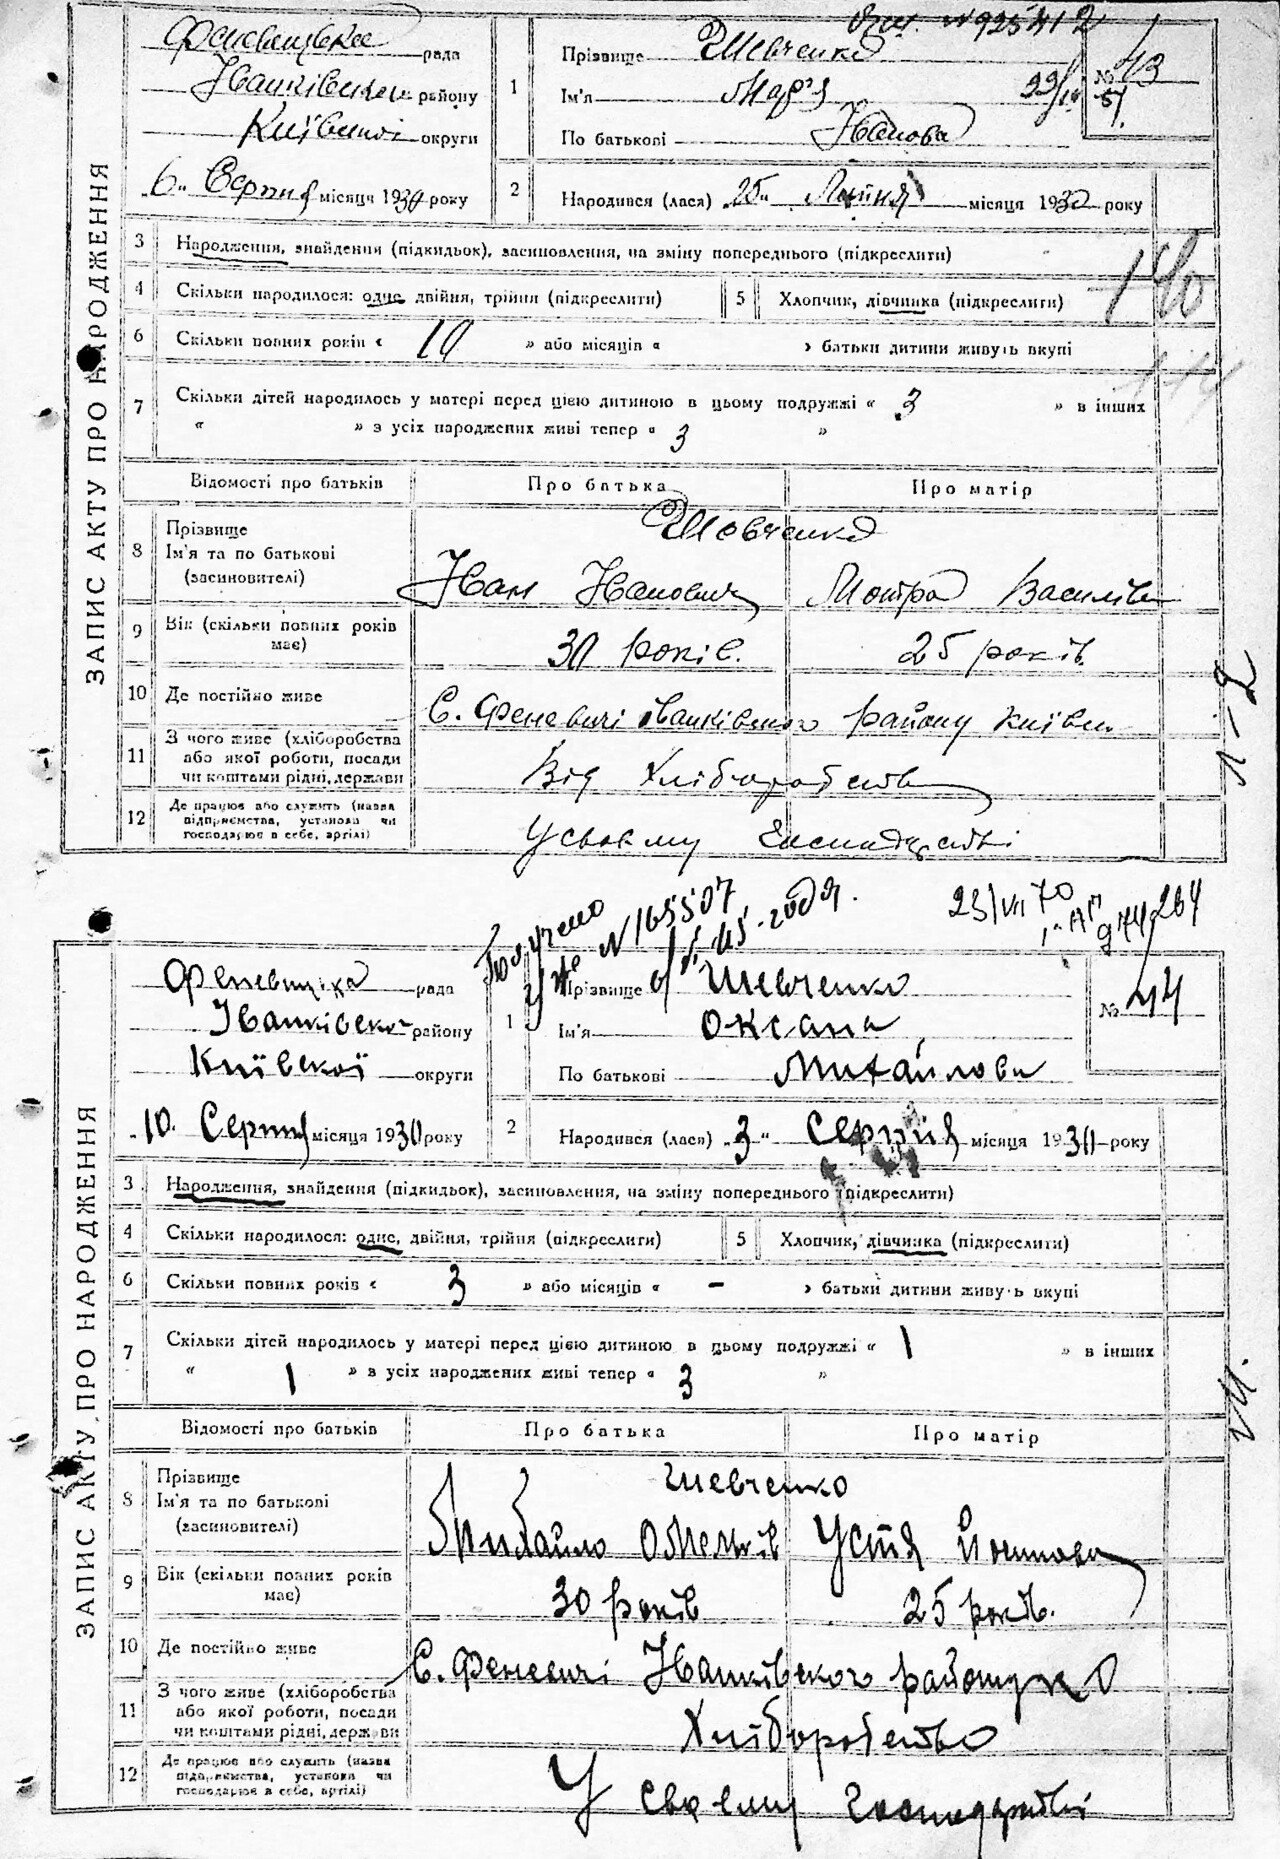 ЗАПИС АКТУ ПРО НАРОДЖЕННЯ
N 925412
Феневицька рада
Іванківськ району
Київської округи
"6" Серпня місяця 1930 року
1 Прізвище Шевченко
Ім'я Мар'я
По батькові Іванова
№ 43
51
2 Народився (лася) "25" Липня місяця 1930 року
3 Народження, знайдення (підкидьок), засиновлення, на зміну попереднього (підкреслити)
4 Скільки народилося: одне, двійня, трійня (підкреслити)
5 Хлопчик, дівчинка (підкреслити)
140
6 Скільки повних років « 10 » або місяців « » батьки дитини живуть вкупі
114
7 Скільки дітей народилось у матері перед цією дитиною в цьому подружжі « 3 » в інших
« » з усіх народжених живі тепер « 3 »
Відомості про батьків Про батька Про матір
8 Прізвище
Ім'я та по батькові
(засиновителі)
Шевченко
Іван Іванович Мотря Василів
9 Вік (скільки повних років має)
30 років. 25 років
10 Де постійно живе
С. Феневичі Іванківського району Київськ
11 З чого живе (хліборобства
або якої роботи, посади
чи коштами рідні, держави
Від Хліборобства
12 Де працює або служить (назва
підприємства, установи чи
господарює в себе, артілі)
У своєму господарстві
1-2
Получено
N 165507
45 года.
23/VII 70
ЗАПИС АКТУ ПРО НАРОДЖЕННЯ
Феневицька рада
Іванківськ району
Київської округи
"10. Серпня місяця 1930 року
1 Прізвище Шевченко
Ім'я Оксана
По батькові Михайлова
№ 44
2 Народився (лася) "3" Серпня місяця 1930 року
3 Народження, знайдення (підкидьок), засиновлення, на зміну попереднього (підкреслити)
4 Скільки народилося: одне, двійня, трійня (підкреслити)
5 Хлопчик, дівчинка (підкреслити)
6 Скільки повних років « 3 » або місяців « - » батьки дитини живуть вкупі
7 Скільки дітей народилось у матері перед цією дитиною в цьому подружжі « 1 » в інших
« 1 » з усіх народжених живі тепер « 3 »
Відомості про батьків Про батька Про матір
8 Прізвище
Ім'я та по батькові
(засиновителі)
Шевченко
Михайло Омельків Устя
9 Вік (скільки повних років має)
30 років 25 років.
10 Де постійно живе
С. Феневичі Іванківского району
11 З чого живе (хліборобства
або якої роботи, посади
чи коштами рідні, держави
Хліборобство
12 Де працює або служить (назва
підприємства, установи чи
господарює в себе, артілі)
У своєму господарстві